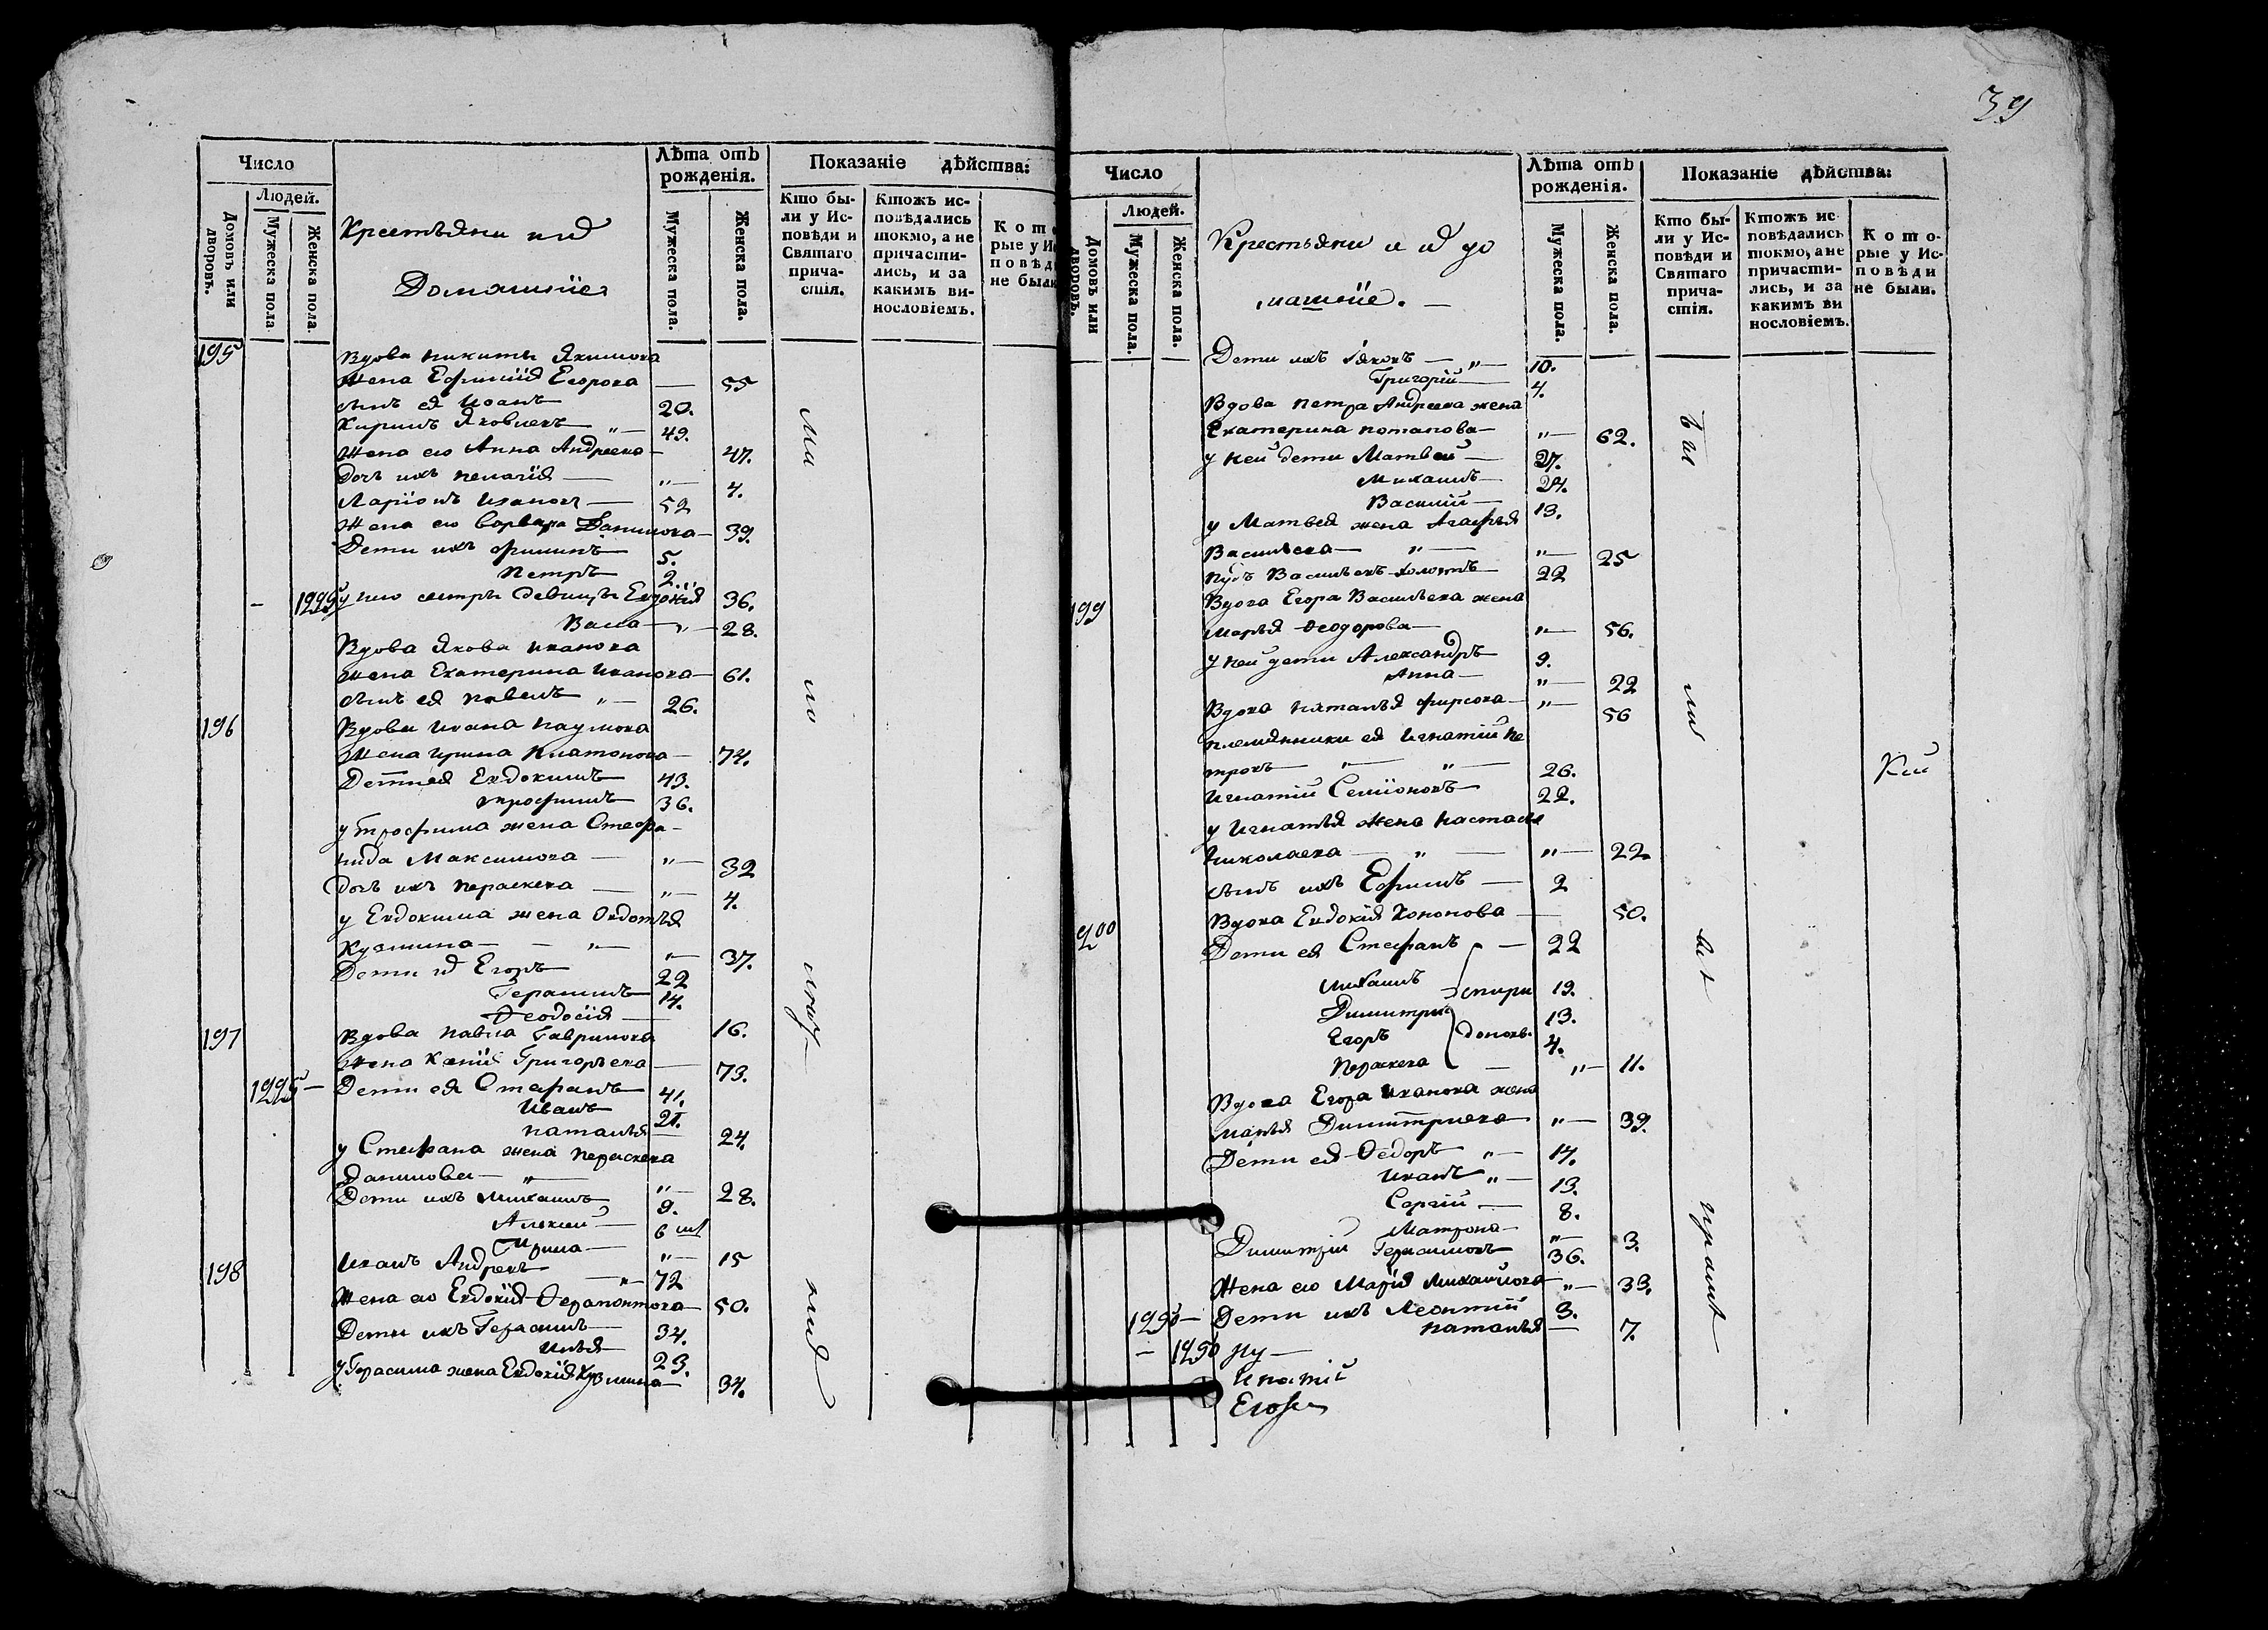 39
Число
Людей.
Домовъ или дворовъ.
Мужеска пола
Женска пола.
Крестьяни ихъ
Домашніе
Лѣта отъ рожденія.
Мужеска пола.
Женска пола.
Показаніе дѣйства:
Кто были у Исповѣди и Святаго причастія.
Ктожъ исповѣдались токмо, а не причастились, и за какимъ винословіемъ.
195 Вдова Никиты Якимова
жена Ефимія Егорова — 55
сынъ ея Иванъ 20.
Кирилъ Яковлевъ „— 49.
жена его Анна Андреева — 47.
дочь ихъ Пелагія — „— 4.
Ларіонъ Ивановъ — 52
жена его Варвара Данилова — 39.
Дети ихъ Филипъ 5.
Петръ 2.
— 1225 у него сестры девицы Евдокія 36.
Васса — „— 28.
Вдова Якова Иванова
жена Екатерина Иванова — 61.
сынъ ея Павелъ „— 26.
196 Вдова Ивана Наумова
жена Ирина Платонова — 74.
Дети ея Евдокимъ 43.
Трофимъ 36.
у Трофима жена Стефа-
нида Максимова — „— 32
дочь ихъ Параскева — „— 4.
у Евдокима жена Овдотья
Кузмина — — „— „— 37.
Дети ихъ Егоръ 22
Герасимъ 14.
Феодосія — 16.
197 Вдова Павла Гаврилова
жена Ксенія Григорьева — 73.
1225 — Дети ея Стефанъ 41.
Иванъ 21.
Наталья — 24.
у Стефана жена Параскева
Данилова — „— „— 28.
Дети ихъ Михаилъ 9.
Алексей — 6
Ирина — „— 15
198 Иванъ Андреевъ —„— 72
Жена его Евдокія Ферапонтова — 50.
Дети ихъ Герасимъ 34.
Илья 23.
у Герасима жена Евдокія Кузмина — 34.
Число
Людей.
Домовъ или дворовъ.
Мужеска пола.
Женска пола.
Крестьяни и ихъ до
машніе. —
Лѣта отъ рожденія.
Мужеска пола.
Женска пола.
Показаніе дѣйства:
Кто были у Исповѣди и Святаго причастія.
Ктожъ исповѣдались токмо, а не причастились, и за какимъ винословіемъ.
Которые у Исповѣди не были.
Дети ихъ Іяковъ — „— 10.
Григорій — 4.
Вдова Петра Андреева жена
Екатерина Потапова — „— 62.
у ней дети Матвей — 27.
Михаилъ — 24.
Василій — 13.
у Матвея жена Агафья
Васильева — „— „— 25
Васильевъ холостъ 22
199 Вдова Егора Васильева жена
Марья Феодорова — „— 56.
у ней дети Александръ 9.
Анна — „— 22
Вдова Наталья Фирсова — „— 56
племянники ея Игнатій Пе
тровъ „— „— 26.
Игнатій Семіоновъ — 22.
у Игнатья жена Настасья
Николаева — „ — „— 22.
сынъ ихъ Ефимъ — 2
Вдова Евдокія Кононова — 50.
200 Дети ея Стефанъ — 22
Михаилъ 19.
Димитрій 13.
Егоръ 4.
Параскева — „— 11.
Спири
доновы
Вдова Егора Иванова жена
Марья Димитриева „— 39.
Дети ея Федоръ „— 14.
Иванъ „— 13.
Сергій — 8.
Матрона — „— 3.
Димитрій Герасимовъ 36.
Жена его Марія Михайлова — „— 33.
1230 — Дети ихъ Леонтій 3.
Наталья — 7.
— 1230